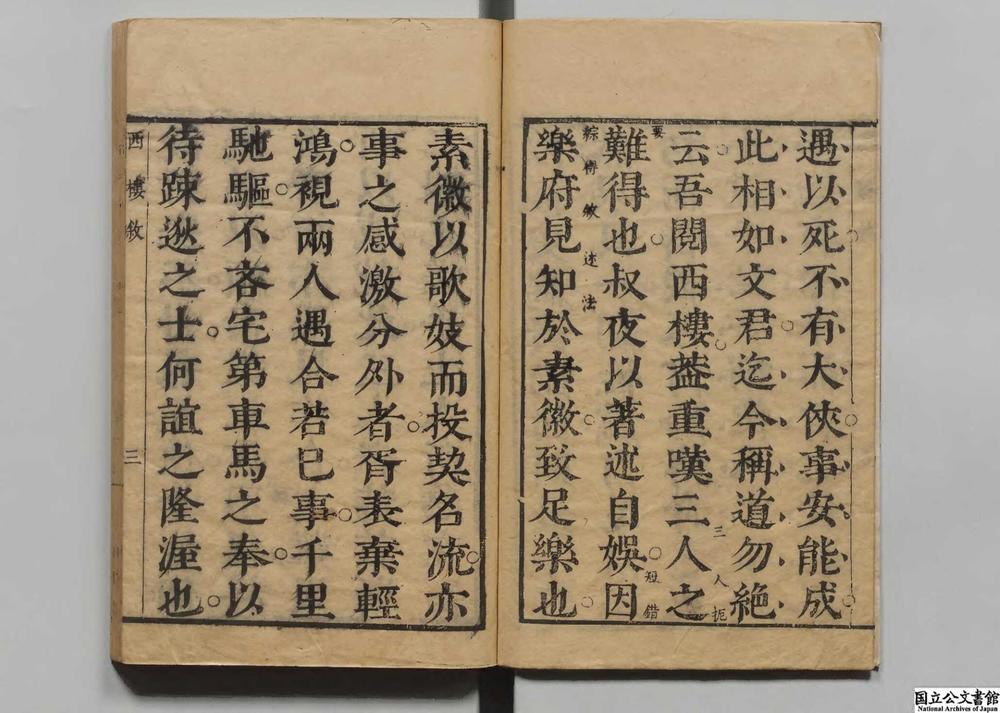 遇以死不有大俠事安能成
此相如文君迄今稱道勿絶
云吾閱西樓葢重嘆三人之
三人扼要
難得也叔夜以著述自娛因
短錯綜
敘述法
樂府見知於素徽致足樂也
素徽以歌妓而投契名流亦
事之感激分外者胥表棄輕
鴻視兩人遇合若已事千里
馳驅不吝宅第車馬之奉以
待踈逖之士何誼之隆渥也
西樓敘
三
国立公文書館
National Archives of Japan